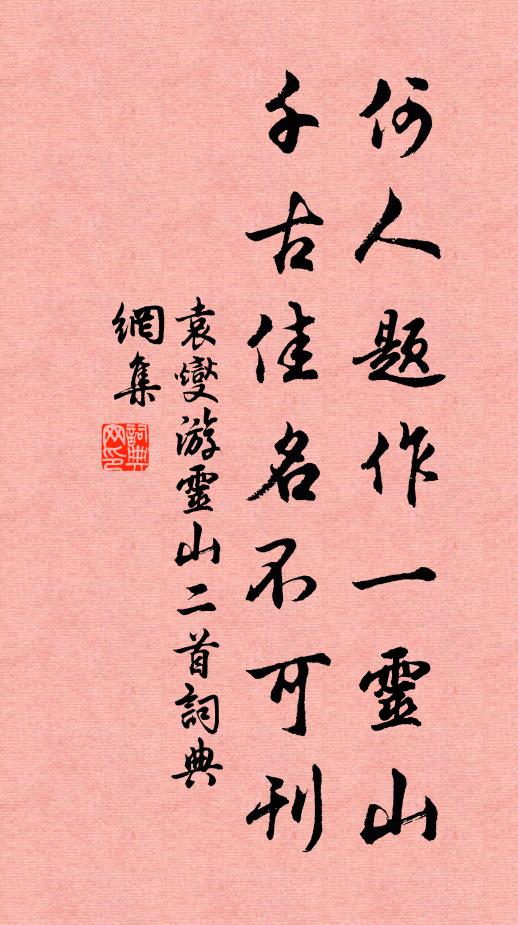 何人題作一靈山
千古佳名不可刊
袁燮游靈山二首詞典
網集
詞典網印